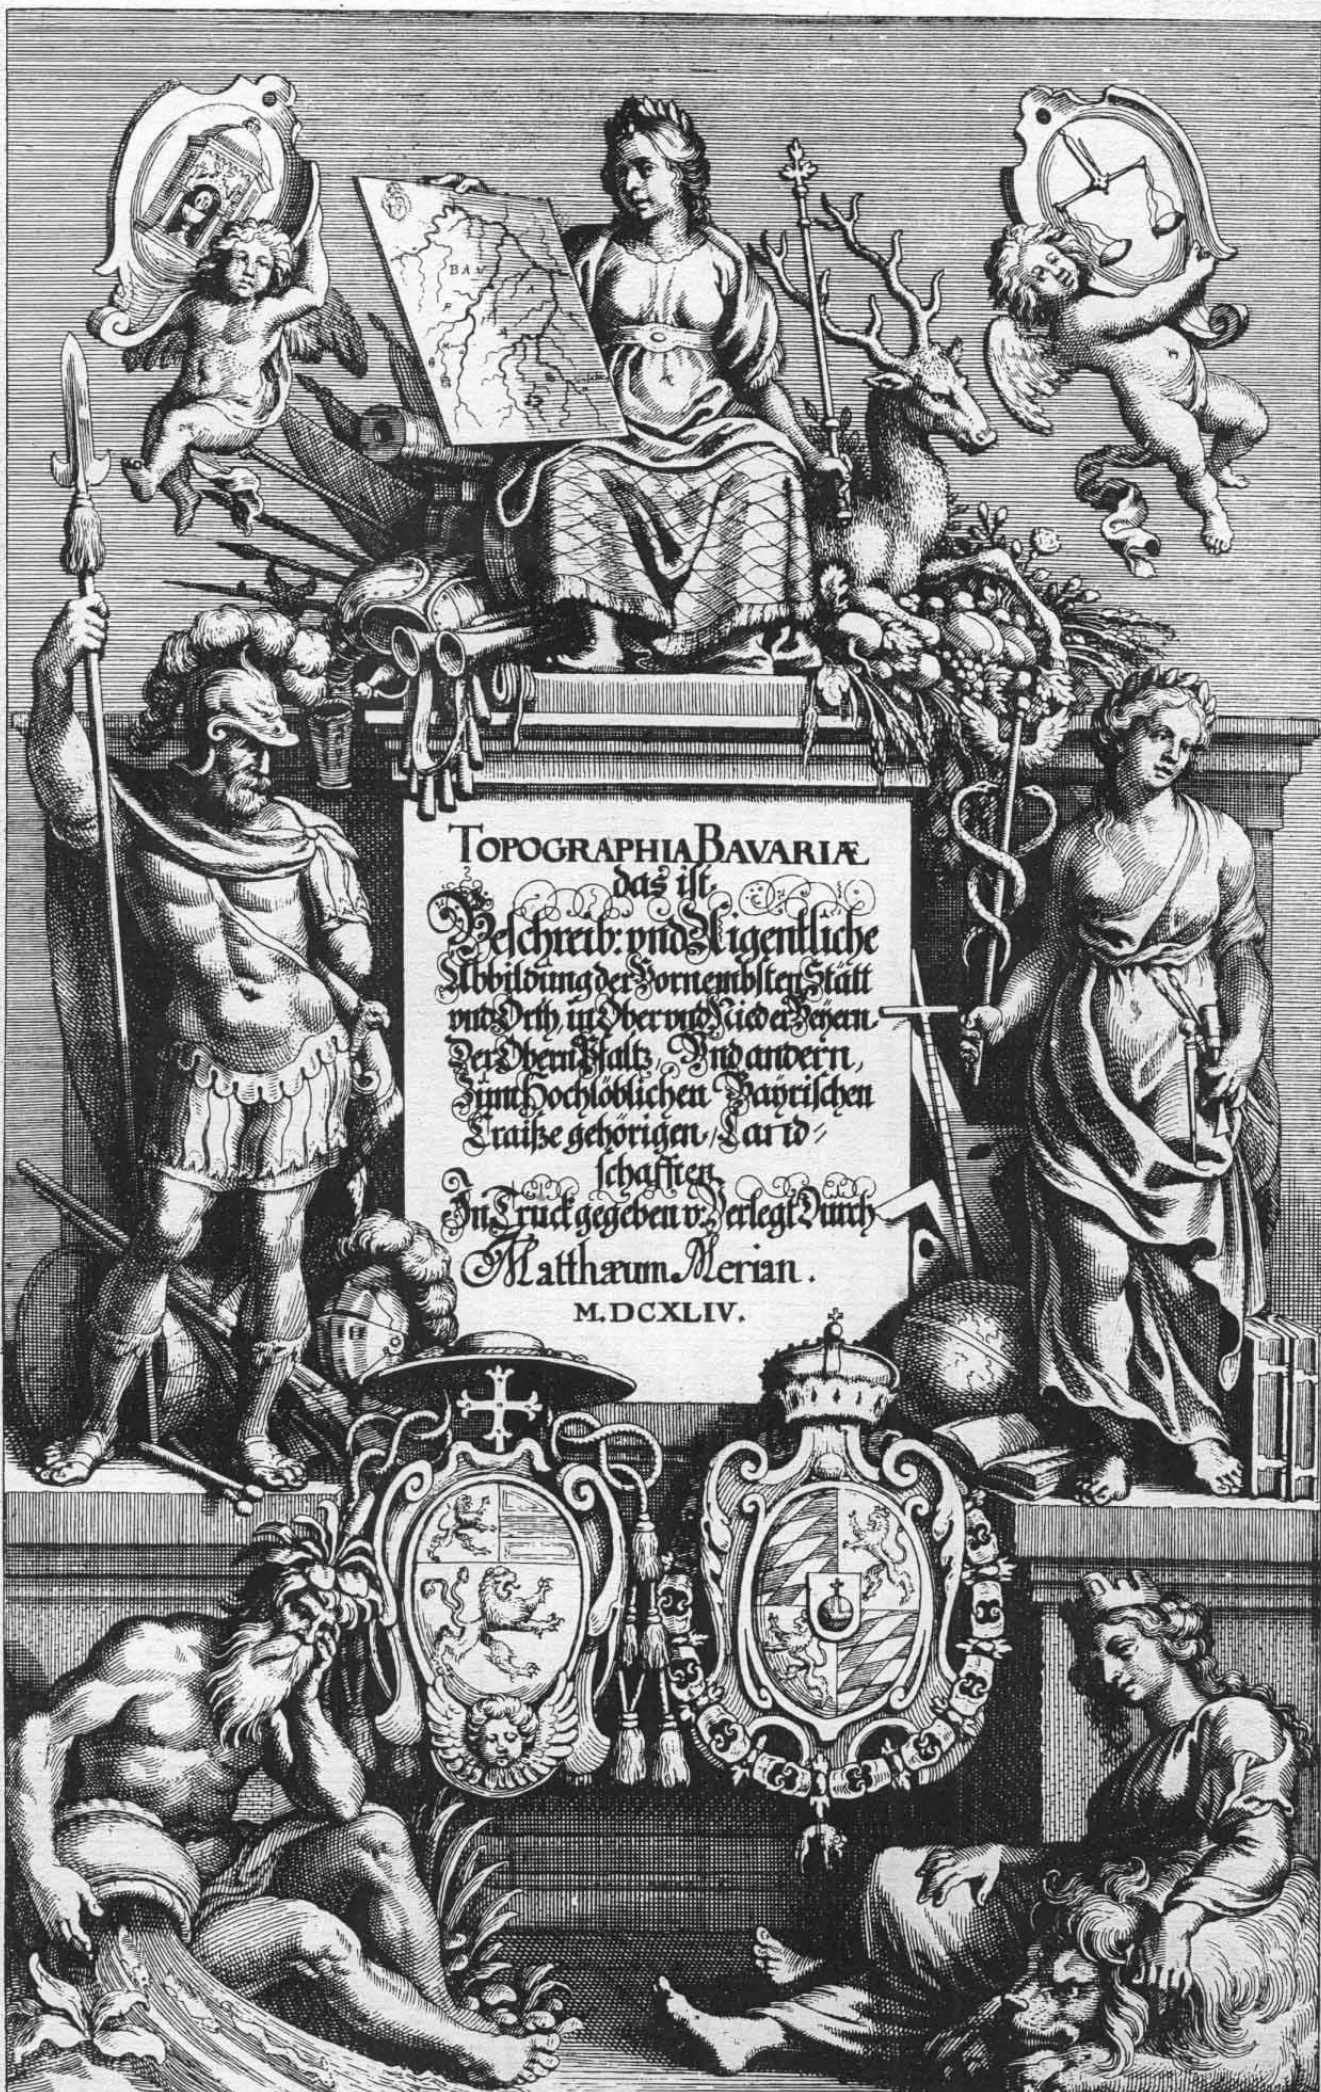 TOPOGRAPHIA BAVARIÆ
das ist,
Beschreib: vnd Aigentliche
Abbildung der Vornembsten Stätt
vnd Orth, in Ober vnd Nieder Beyern,
Der Obern Pfaltz, Vnd andern,
Zum Hochlöblichen Bayrischen
Craiße gehörigen, Land-
schafften.
In Truck gegeben v: Verlegt Durch
Matthæum Merian.
M.DCXLIV.